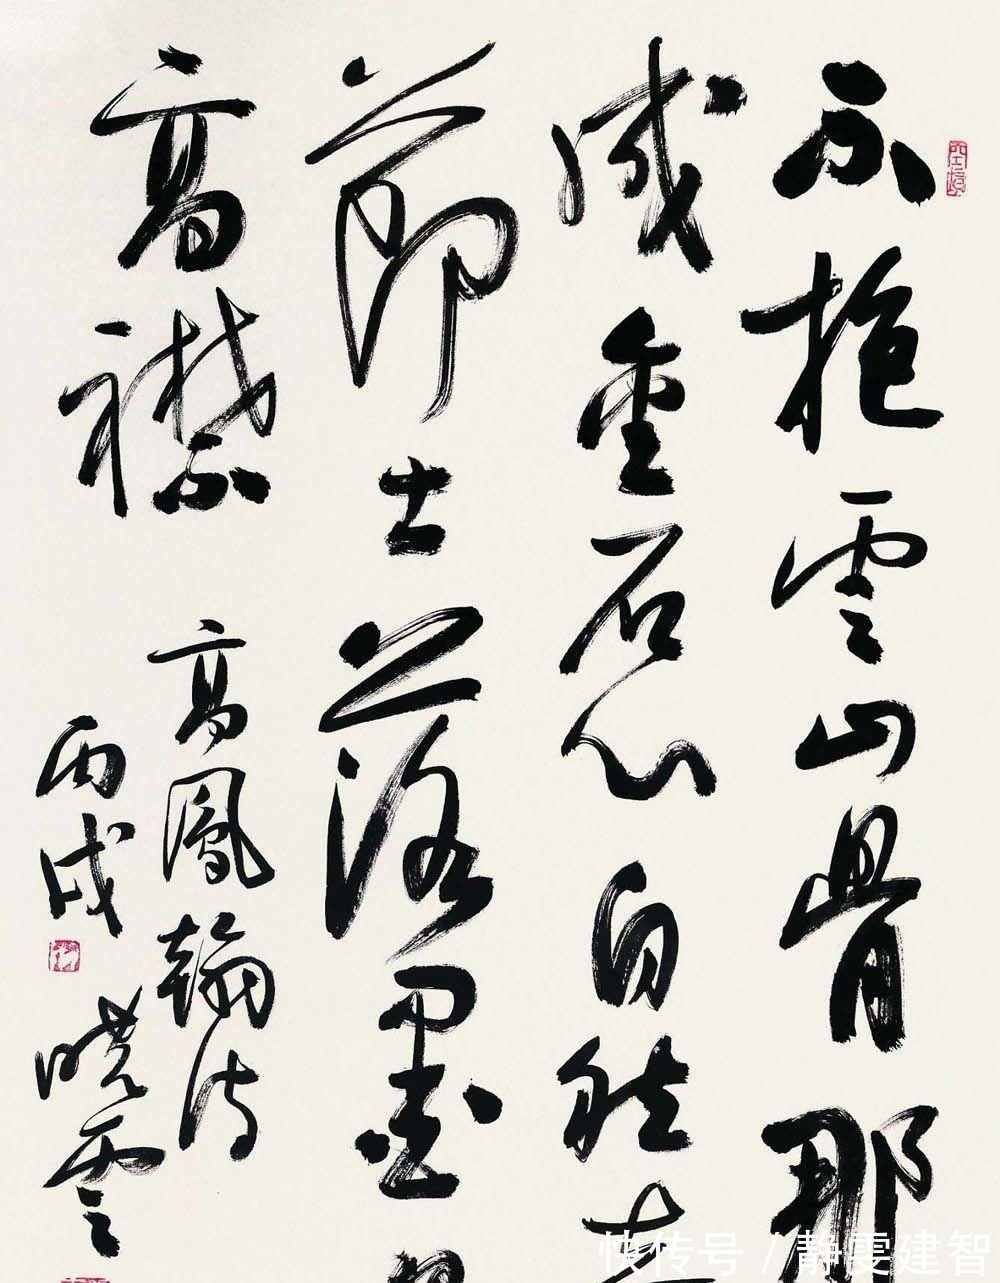 不抱雲山骨那
成金石心自然
節士落墨
高襟
高鳳翰詩
丙戌 曉雲
快传号 / 静雯建智